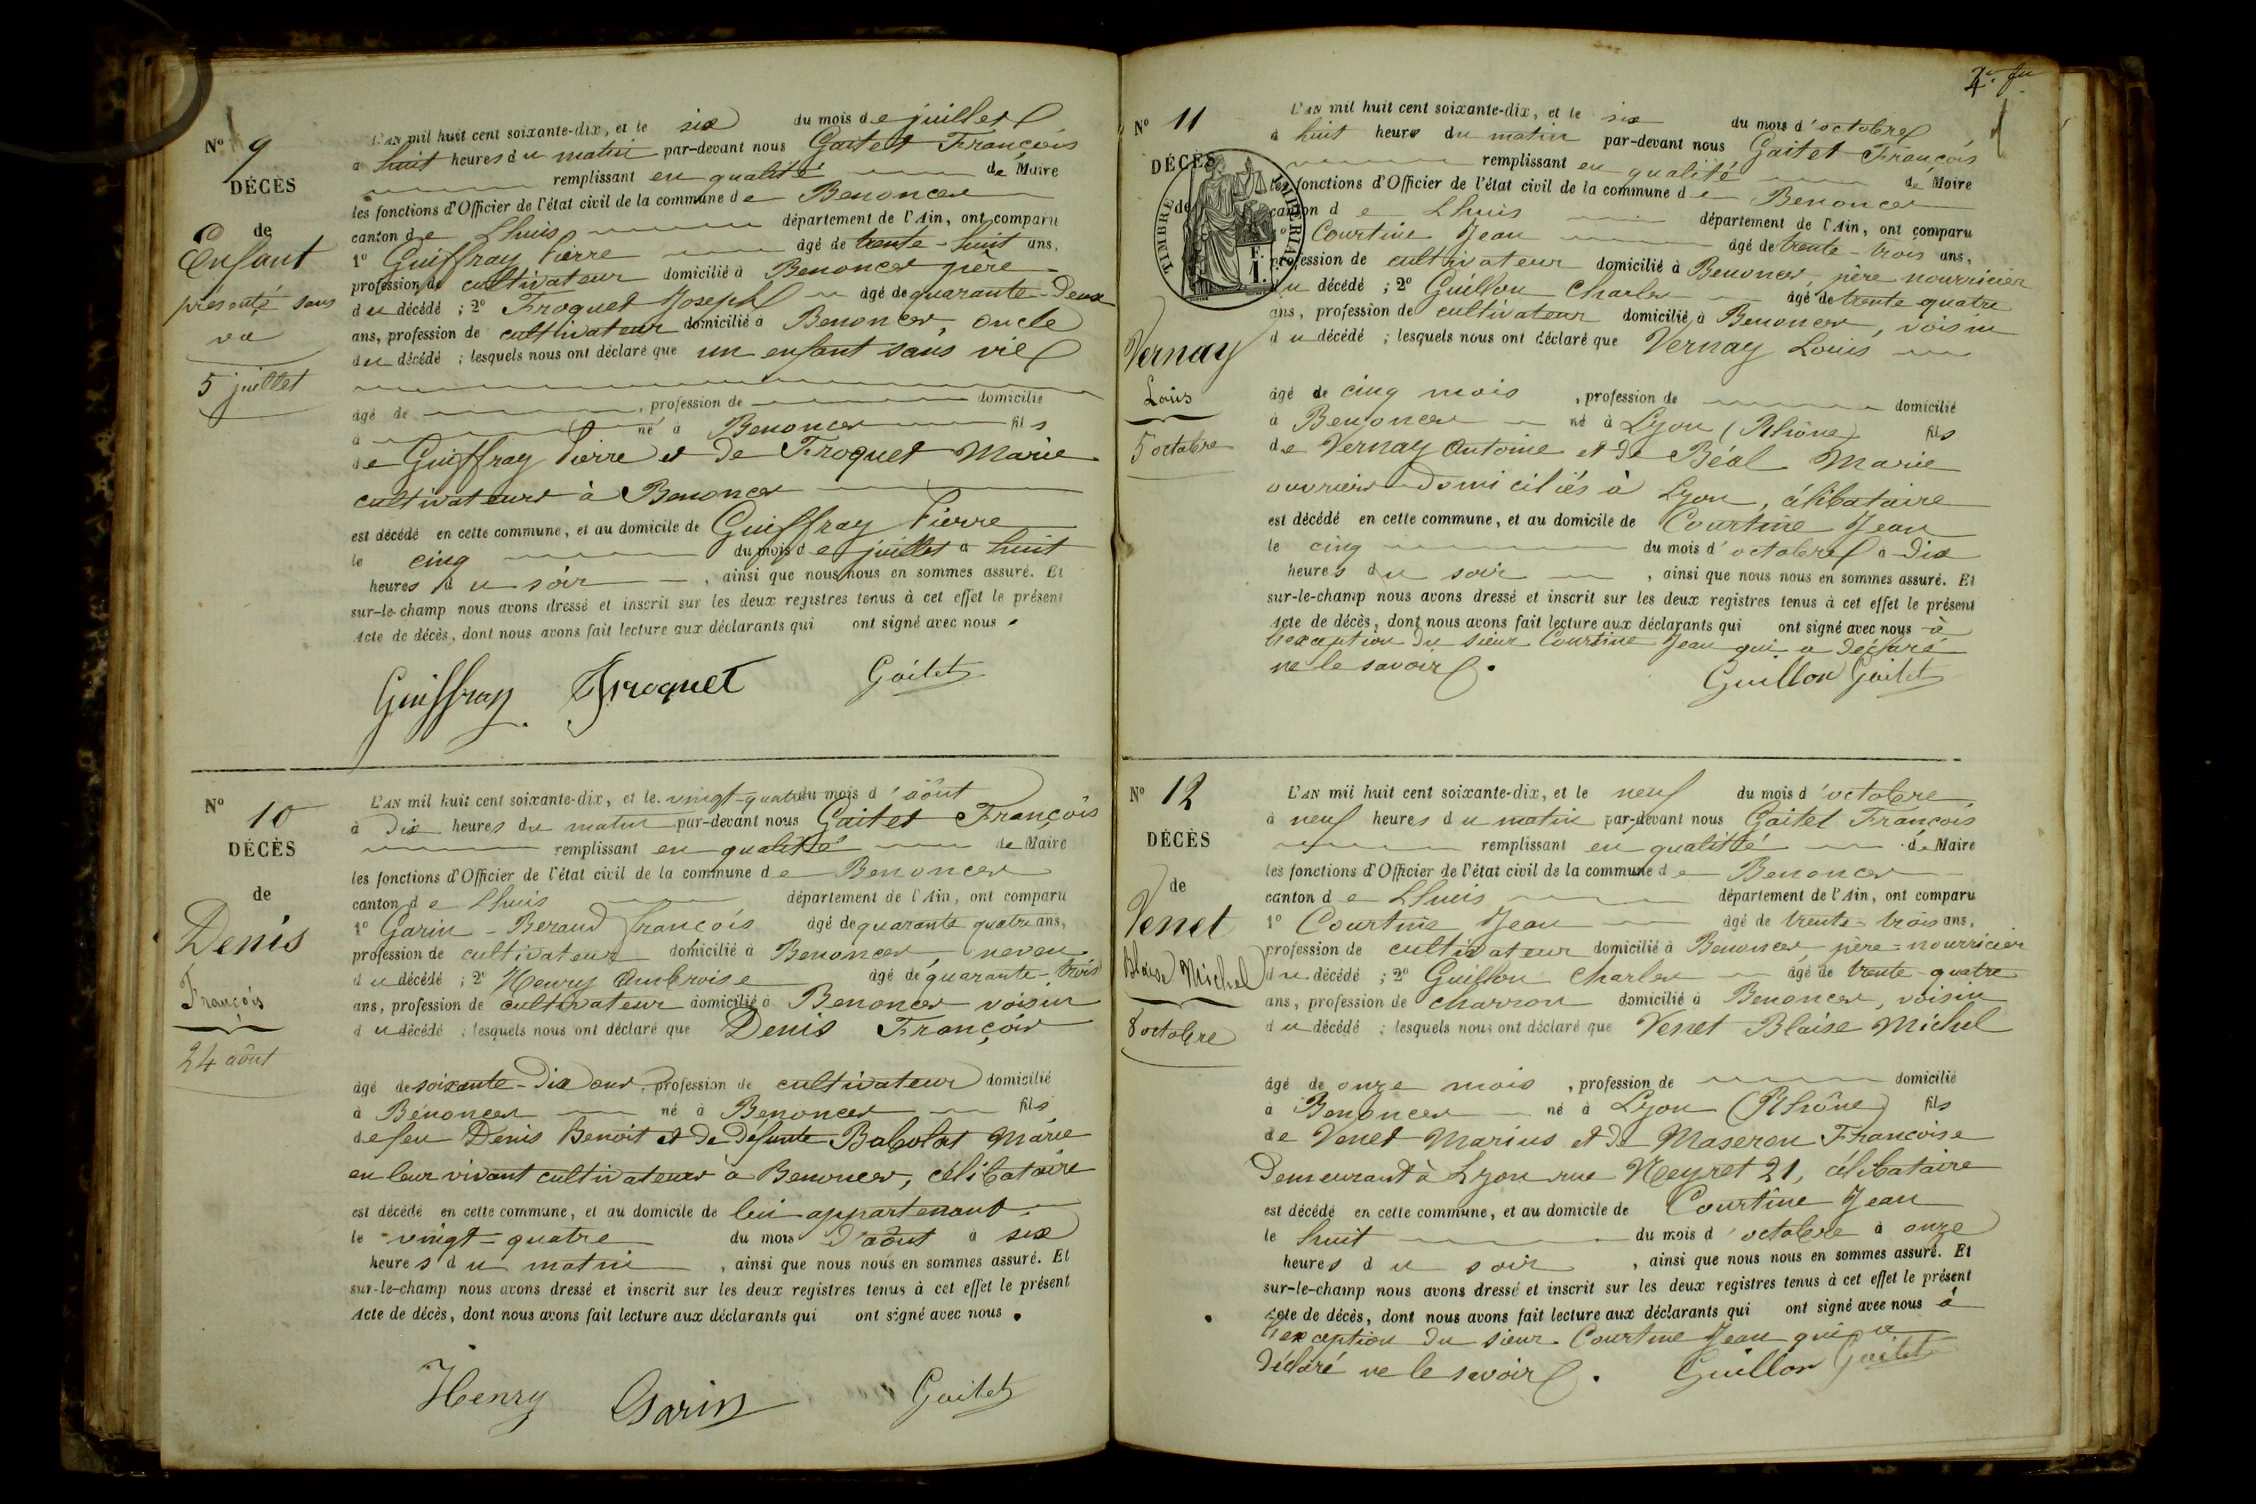 N° 9
DÉCÈS
de
Enfant
présenté sans
vie
5 juillet
L'AN mil huit cent soixante-dix, et le six du mois de juillet
à huit heures du matin par-devant nous Gaitet François
remplissant en qualité de Maire
les fonctions d'Officier de l'état civil de la commune de Benonces
canton de Lhuis département de l'Ain, ont comparu
1° Guiffray Pierre âgé de trente-huit ans,
profession de cultivateur domicilié à Benonces père
du décédé ; 2° Froquet Joseph âgé de quarante-deux
ans, profession de cultivateur domicilié à Benonces, oncle
du décédé ; lesquels nous ont déclaré que un enfant sans vie
âgé de , profession de domicilié
à né à Benonces fils
de Guiffray Pierre et de Froquet Marie
cultivateurs à Benonces
est décédé en cette commune, et au domicile de Guiffray Pierre
le cinq du mois de juillet à huit
heures du soir , ainsi que nous nous en sommes assuré. Et
sur-le-champ nous avons dressé et inscrit sur les deux registres tenus à cet effet le présent
Acte de décès, dont nous avons fait lecture aux déclarants qui ont signé avec nous .
Guiffray Froquet Gaitet
N° 10
DÉCÈS
de
Denis
François
24 août
L'AN mil huit cent soixante-dix, et le vingt-quatre du mois d'août
à dix heures du matin par-devant nous Gaitet François
remplissant en qualité de Maire
les fonctions d'Officier de l'état civil de la commune de Benonces
canton de Lhuis département de l'Ain, ont comparu
1° Garin-Beraud François âgé de quarante quatre ans,
profession de cultivateur domicilié à Benonces, neveu
du décédé ; 2° Henry Ambroise âgé de quarante-trois
ans, profession de cultivateur domicilié à Benonces voisin
du décédé ; lesquels nous ont déclaré que Denis François
âgé de soixante-dix ans, profession de cultivateur domicilié
à Bénonces né à Benonces fils
de feu Denis Benoit et de défunte Babolat Marie
en leur vivant cultivateurs à Benonces, célibataire
est décédé en cette commune, et au domicile de lui appartenant
le vingt-quatre du mois d'août à six
heures du matin , ainsi que nous nous en sommes assuré. Et
sur-le-champ nous avons dressé et inscrit sur les deux registres tenus à cet effet le présent
Acte de décès, dont nous avons fait lecture aux déclarants qui ont signé avec nous .
Henry Garin Gaitet
N° 11
DÉCÈS
de
TIMBRE IMPERIAL
Vernay
Louis
5 octobre
L'AN mil huit cent soixante-dix, et le six du mois d'octobre
à huit heures du matin par-devant nous Gaitet François
remplissant en qualité de Maire
les fonctions d'Officier de l'état civil de la commune de Benonces
canton de Lhuis département de l'Ain, ont comparu
1° Courtine Jean âgé de trente-trois ans,
profession de cultivateur domicilié à Benonces, père nourricier
du décédé ; 2° Guillon Charles âgé de trente quatre
ans, profession de cultivateur domicilié à Benonces, voisin
du décédé ; lesquels nous ont déclaré que Vernay Louis
âgé de cinq mois , profession de domicilié
à Benonces né à Lyon (Rhône) fils
de Vernay Antoine et de Béal Marie
ouvriers domiciliés à Lyon, célibataire
est décédé en cette commune, et au domicile de Courtine Jean
le cinq du mois d'octobre à dix
heures du soir , ainsi que nous nous en sommes assuré. Et
sur-le-champ nous avons dressé et inscrit sur les deux registres tenus à cet effet le présent
Acte de décès, dont nous avons fait lecture aux déclarants qui ont signé avec nous à
l'exception du sieur Courtine Jean qui a déclaré
ne le savoir.
Guillon Gaitet
N° 12
DÉCÈS
de
Venet
Blaise Michel
8 octobre
L'AN mil huit cent soixante-dix, et le neuf du mois d'octobre
à neuf heures du matin par-devant nous Gaitet François
remplissant en qualitté de Maire
les fonctions d'Officier de l'état civil de la commune de Benonces
canton de Lhuis département de l'Ain, ont comparu
1° Courtine Jean âgé de trente-trois ans,
profession de cultivateur domicilié à Benonces, père-nourricier
du décédé ; 2° Guillon Charles âgé de trente-quatre
ans, profession de charron domicilié à Benonces, voisin
du décédé ; lesquels nous ont déclaré que Venet Blaise Michel
âgé de onze mois , profession de domicilié
à Benonces né à Lyon (Rhône) fils
de Venet Marius et de Maseron Françoise
demeurant à Lyon rue Neyret 21, célibataire
est décédé en cette commune, et au domicile de Courtine Jean
le huit du mois d'octobre à onze
heures du soir , ainsi que nous nous en sommes assuré. Et
sur-le-champ nous avons dressé et inscrit sur les deux registres tenus à cet effet le présent
Acte de décès, dont nous avons fait lecture aux déclarants qui ont signé avec nous à
l'exception du sieur Courtine Jean qui a
déclaré ne le savoir. Guillon Gaitet